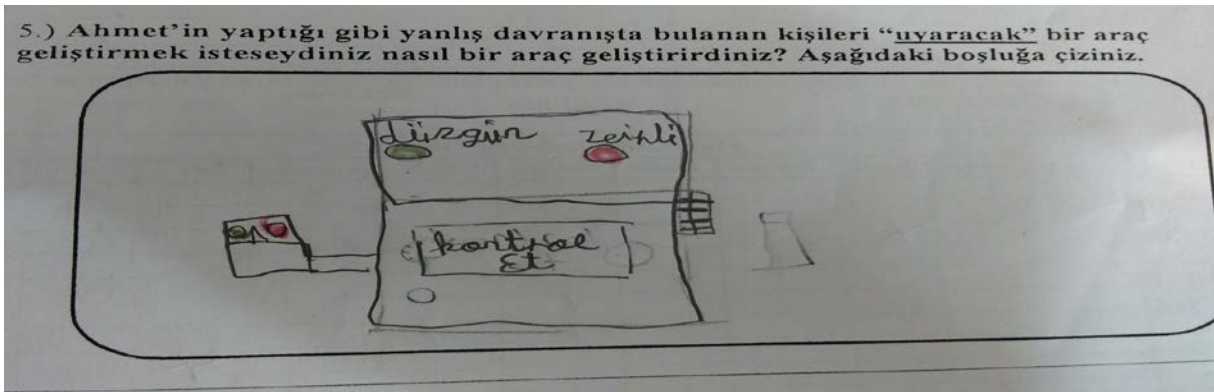 5.) Ahmet’in yaptığı gibi yanlış davranışta bulanan kişileri “uyaracak” bir araç
geliştirmek isteseydiniz nasıl bir araç geliştirirdiniz? Aşağıdaki boşluğa çiziniz.
düzgün zeihli
kontrol
Et